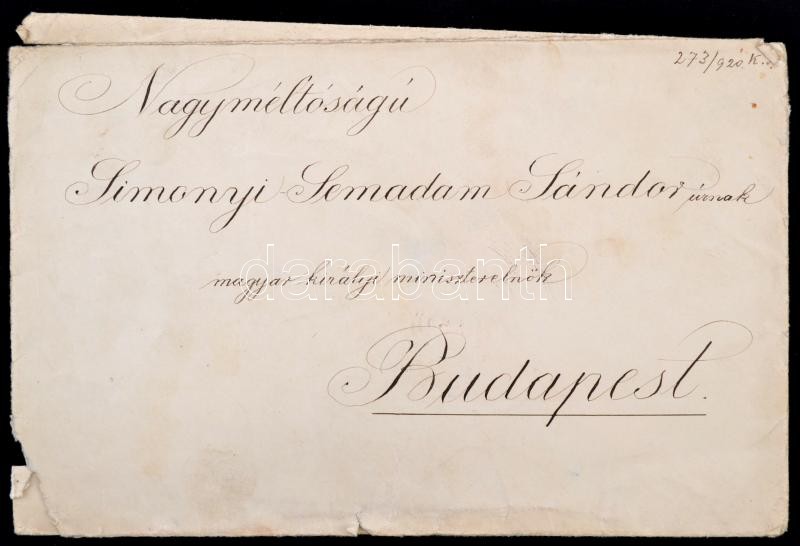 273/920. K...
Nagyméltóságú
Simonyi-Semadam Sándor úrnak
magyar királyi miniszterelnök
darabanth
Budapest.